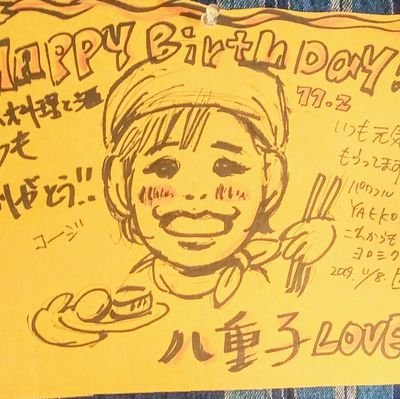 HAPPY BirtH DAY!
料理と酒
つも
りがとう!!
コージ
11.2
いつも元気
もらってます
パワフル
YAEKO
これからも
ヨロシク
2019 11/8.
八重子 LOVE